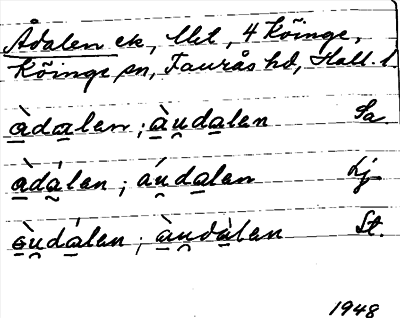 Ådalen ek, Utl, 4 Köinge,
Köinge sn, Faurås hd, Hall. l.
à̲da̲len; à̲u̯da̲len Sa
à̲dá̰len; áu̯da̲len Kj
ə̲̀u̯dá̲len; à̲u̯dà̲len St.
1948